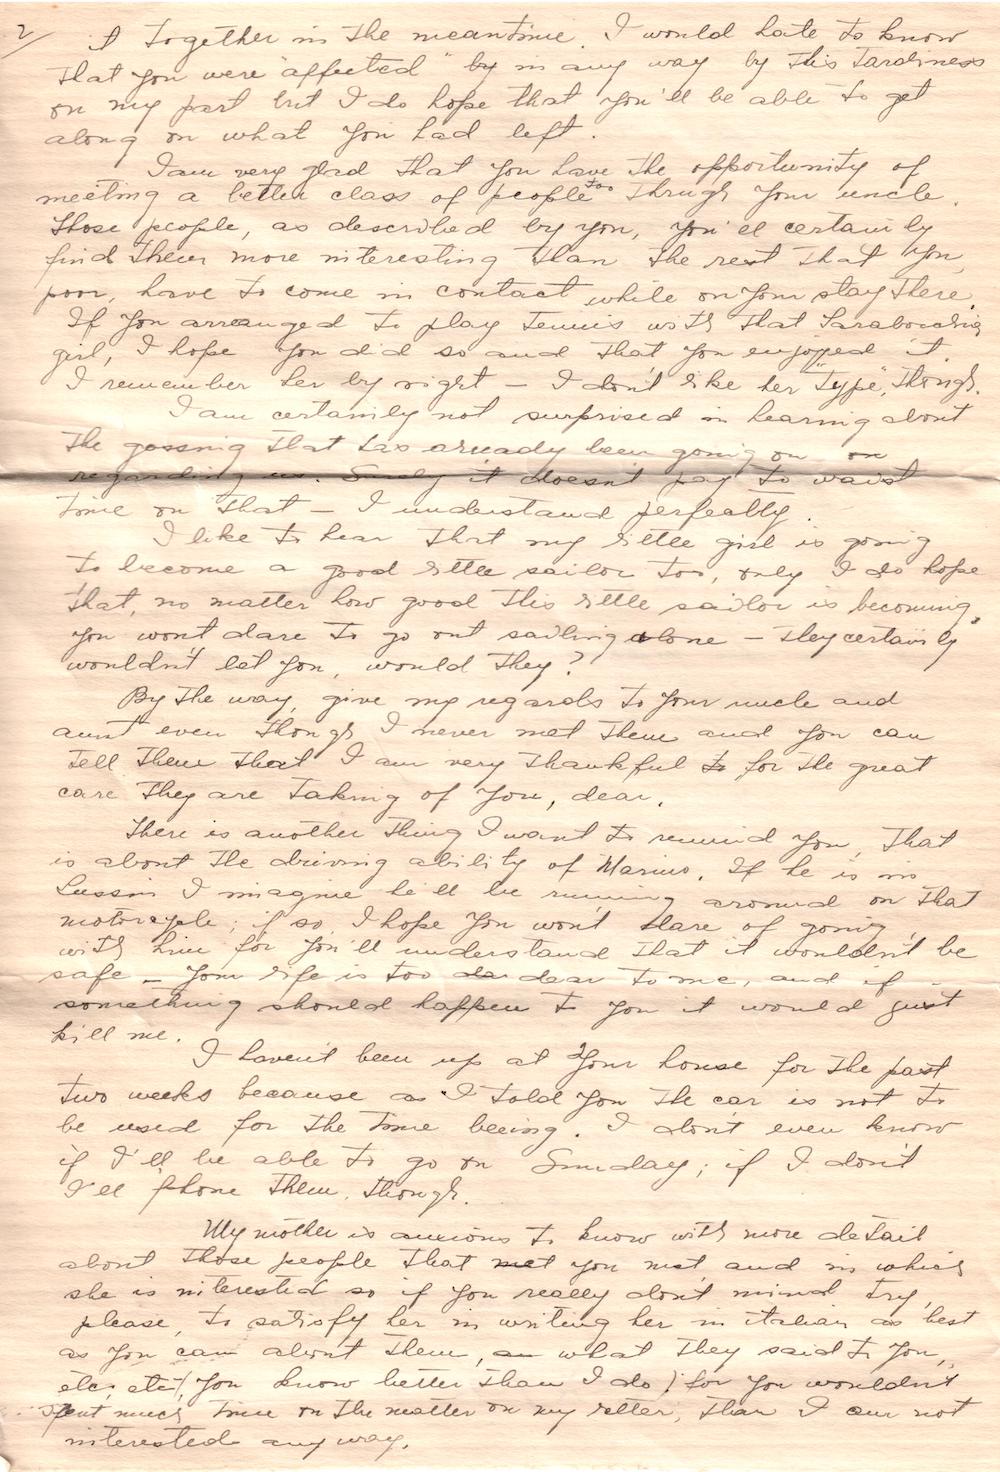 2/ it together in the meantime. I would hate to know
that you were "affected" by in any way by this tardiness
on my part but I do hope that you'll be able to get
along on what you had left.
I am very glad that you have the opportunity of
meeting a better class of people too through your uncle.
Those people, as described by you, you'll certainly
find them more interesting than the rest that you,
poor, have to come in contact while on your stay there.
If you arranged to play tennis with that
girl, I hope you did so and that you enjoyed it.
I remember her by sight — I don't like her "type", though.
I am certainly not surprised in hearing about
the gossing that has already been going on on
regarding us. Surely it doesn't pay to waist
time on that — I understand perfectly.
I like to hear that my little girl is going
to become a good little sailor too, only I do hope
that, no matter how good this little sailor is becoming,
you won't dare to go out sailing alone — they certainly
wouldn't let you, would they?
By the way, give my regards to your uncle and
aunt even though I never met them and you can
tell them that I am very thankful to for the great
care they are taking of you, dear.
There is another thing I want to remind you, that
is about the driving ability of Marino. If he is in
Lussin I imagine he'll be running around on that
motorcycle; if so, I hope you won't dare of going
with him for you'll understand that it wouldn't be
safe — your life is too dear to me, and if
something should happen to you it would just
kill me.
I haven't been up at your house for the past
two weeks because as I told you the car is not to
be used for the time beeing. I don't even know
if I'll be able to go on Sunday; if I don't
I'll 'phone them, though.
My mother is anxious to know with more detail
about those people that met you met and in which
she is interested so if you really don't mind try,
please, to satisfy her in writing her in italian as best
as you can about them, on what they said to you,
etc, etc, (you know better than I do) for you wouldn't
spent much time on the matter on my letter, than I am not
interested any way.